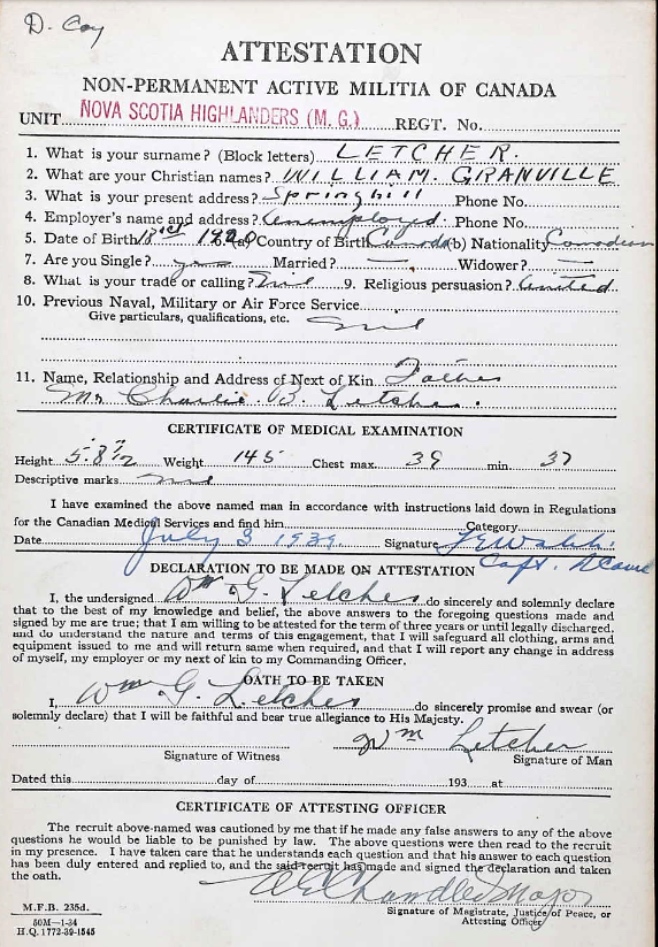 D. Coy
ATTESTATION
NON-PERMANENT ACTIVE MILITIA OF CANADA
UNIT NOVA SCOTIA HIGHLANDERS (M. G.) REGT. No.
1. What is your surname? (Block letters) LETCHER.
2. What are your Christian names? WILLIAM. GRANVILLE
3. What is your present address? Springhill Phone No.
4. Employer's name and address? Unemployed. Phone No.
5. Date of Birth 1920 (a) Country of Birth Canada (b) Nationality Canadian
7. Are you Single? yes Married? — Widower? —
8. What is your trade or calling? Nil 9. Religious persuasion? United.
10. Previous Naval, Military or Air Force Service
Give particulars, qualifications, etc. Nil
11. Name, Relationship and Address of Next of Kin Father
Mr Charlie. B. Letcher.
CERTIFICATE OF MEDICAL EXAMINATION
Height 5.8 1/2 Weight 145 Chest max. 39 min. 37
Descriptive marks nil
I have examined the above named man in accordance with instructions laid down in Regulations
for the Canadian Medical Services and find him Category
Date July 3 1939. Signature
Capt.
DECLARATION TO BE MADE ON ATTESTATION
I, the undersigned Wm G. Letcher do sincerely and solemnly declare
that to the best of my knowledge and belief, the above answers to the foregoing questions made and
signed by me are true; that I am willing to be attested for the term of three years or until legally discharged,
and do understand the nature and terms of this engagement, that I will safeguard all clothing, arms and
equipment issued to me and will return same when required, and that I will report any change in address
of myself, my employer or my next of kin to my Commanding Officer.
OATH TO BE TAKEN
I, Wm G. Letcher do sincerely promise and swear (or
solemnly declare) that I will be faithful and bear true allegiance to His Majesty.
Wm Letcher
Signature of Witness Signature of Man
Dated this day of 193 at
CERTIFICATE OF ATTESTING OFFICER
The recruit above-named was cautioned by me that if he made any false answers to any of the above
questions he would be liable to be punished by law. The above questions were then read to the recruit
in my presence. I have taken care that he understands each question and that his answer to each question
has been duly entered and replied to, and the said recruit has made and signed the declaration and taken
the oath.
Chandler Major
M.F.B. 235d.
Signature of Magistrate, Justice of Peace, or
Attesting Officer
50M—1-34
H.Q. 1772-39-1545